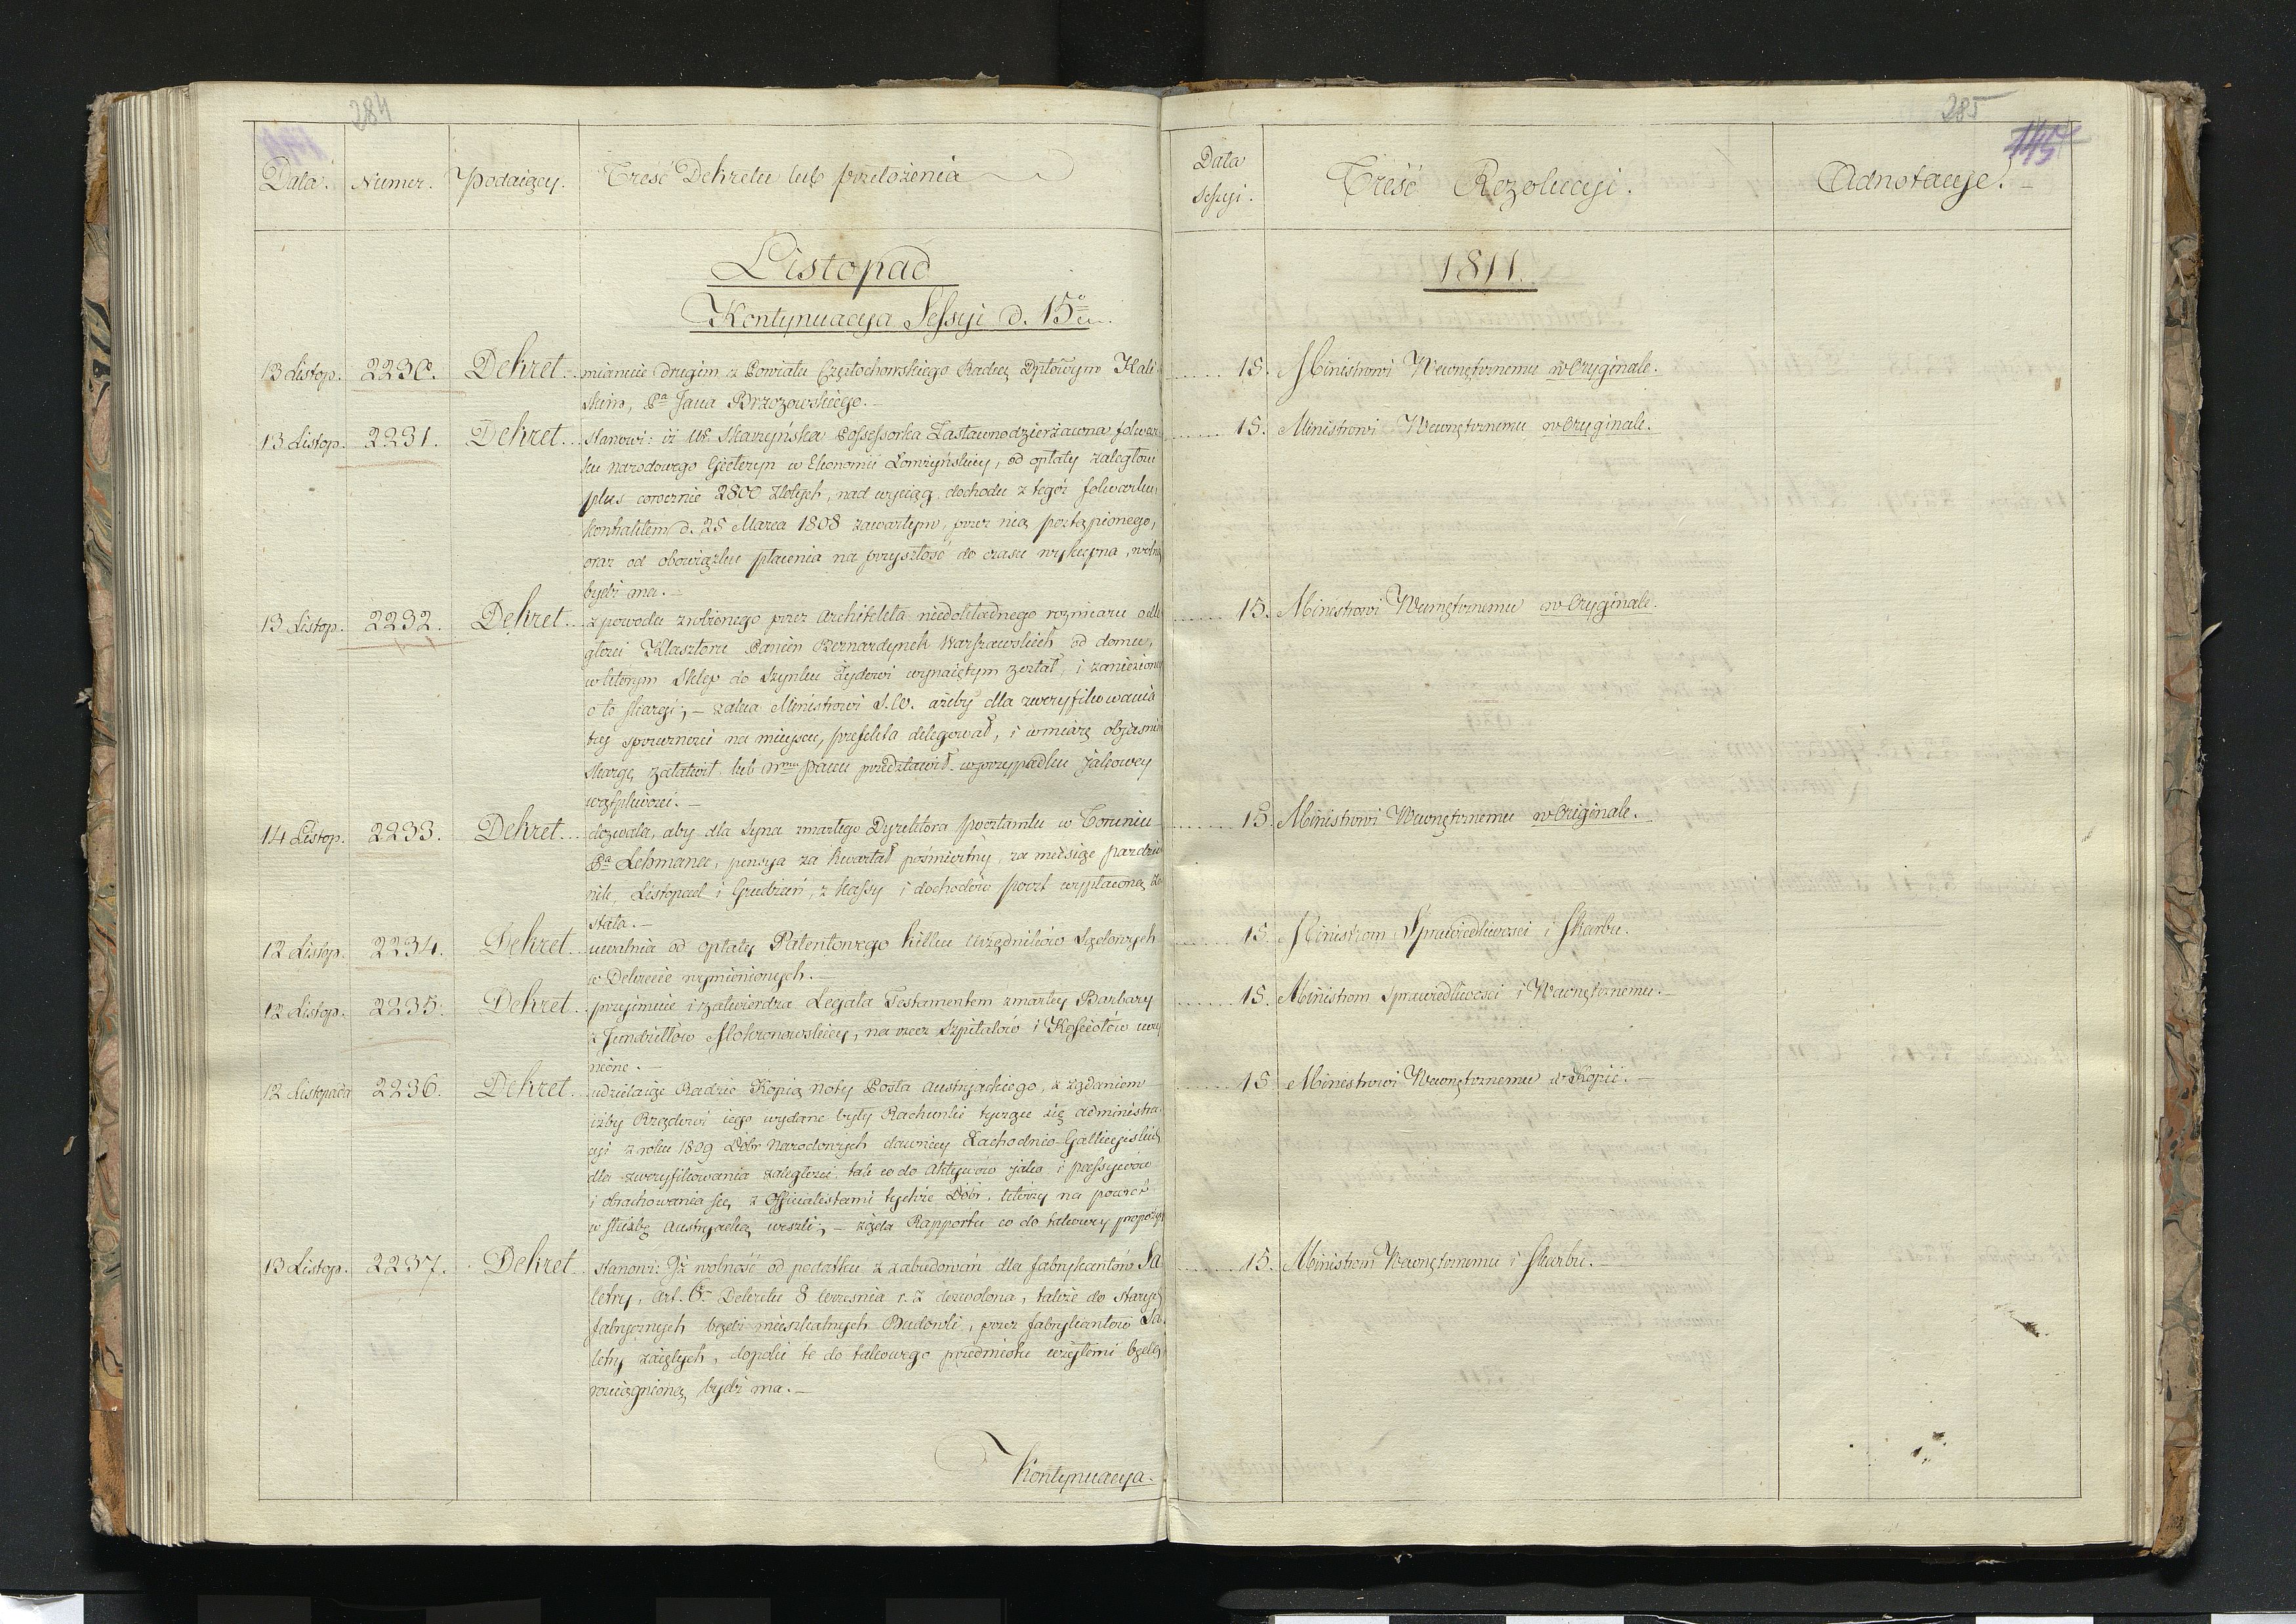 284
Data. Numer. Podaiący. Treść Dekretu lub przełożenia
Listopad
Kontynuacya Sessyi d. 15º
13 Listop. 2230. Dekret mianuie drugim z Powiatu Częstochowskiego Radcą Dptowym Kali
skim, Pª Jana Brzozowskiego.—
13 Listop. 2231. Dekret stanowi: iż Skarzyńska Possessorka Zastawnodzierżawna folwar
ku narodowego Giełczyn w Ekonomii Łomżyńskiey, od opłaty zaległości
plus corocznie 2800 złotych, nad wyciąg dochodu z tegoż folwarku,
kontraktem d. 25 Marca 1808 zawartym, przez nią postąpionego,
oraz od obowiązku płacenia na przyszłość do czasu wykupna, wolną
bydź ma.—
13 Listop. 2232. Dekret z powodu zrobionego przez Architekta niedokładnego rozmiaru odle
głości Klasztoru Panien Bernardynek Warszawskich od domu,
w którym Sklep do Szynku Żydowi wynaiętym został, i zaniesioney
o to skargi;— zaleca Ministrowi S.W. ażeby dla zweryfikowania
tey sprzeczności na mieyscu, prefekta delegował, i w miarę obiaśnień
skargę załatwił, lub Nmu Panu przedstawił w przypadku jakowey
wątpliwości.—
14 Listop. 2233. Dekret dozwala, aby dla Syna zmarłego Dyrektora Pocztamtu w Toruniu
Pª Lehmana, pensya za kwartał pośmiertny, za miesiące Pazdzier
nik, Listopad i Grudzień, z kassy i dochodów poczt wypłaconą zo
stała.—
12 Listop. 2234. Dekret uwalnia od opłaty Patentowego kilku Urzędników Sądowych
w Dekrecie wymienionych.—
12 Listop. 2235. Dekret przyimuie i zatwierdza Legata Testamentem zmarłey Barbary
z Jundziłłów Mokronowskiey, na rzecz Szpitalów i Kościołów uczy
nione.—
12 Listopada 2236. Dekret udzielaiąc Radzie Kopią Noty Posła Austryackiego, z żądaniem
iżby Rządowi iego wydane były Rachunki tyczące się administra
cyi z roku 1809 Dóbr Narodowych dawniey Zachodnio-Gallicyiskich
dla zweryfikowania zaległości tak co do Aktywów jako i passywów
i obrachowania się z Officialistami tychże Dóbr, którzy na powrót
w służbę Austryacką weszli;— żąda Rapportu co do takowey propozycyi
13 Listop. 2237. Dekret stanowi: Iż wolność od podatku z zabudowań dla fabrykantów Sa
letry, Art. 6. Dekretu 8 Września r. z dozwolona, także do starych
fabrycznych bądź mieszkalnych Budowli, przez fabrykantów Sa
letry zaiętych, dopóki te do takowego przedmiotu użytemi będą
rozciągnioną bydź ma.—
Kontynuacya.
285
145
Data Sessyi. Treść Rezolucyi. Adnotacye.
1811.
15. Ministrowi Wewnętrznemu w Oryginale.
15. Ministrowi Wewnętrznemu w Oryginale.
15. Ministrowi Wewnętrznemu w Oryginale.
15. Ministrowi Wewnętrznemu w Originale.
15. Ministrom Sprawiedliwości i Skarbu.
15. Ministrom Sprawiedliwości i Wewnętrznemu.—
15 Ministrowi Wewnętrznemu w Kopii.—
15. Ministrom Wewnętrznemu i Skarbu.—